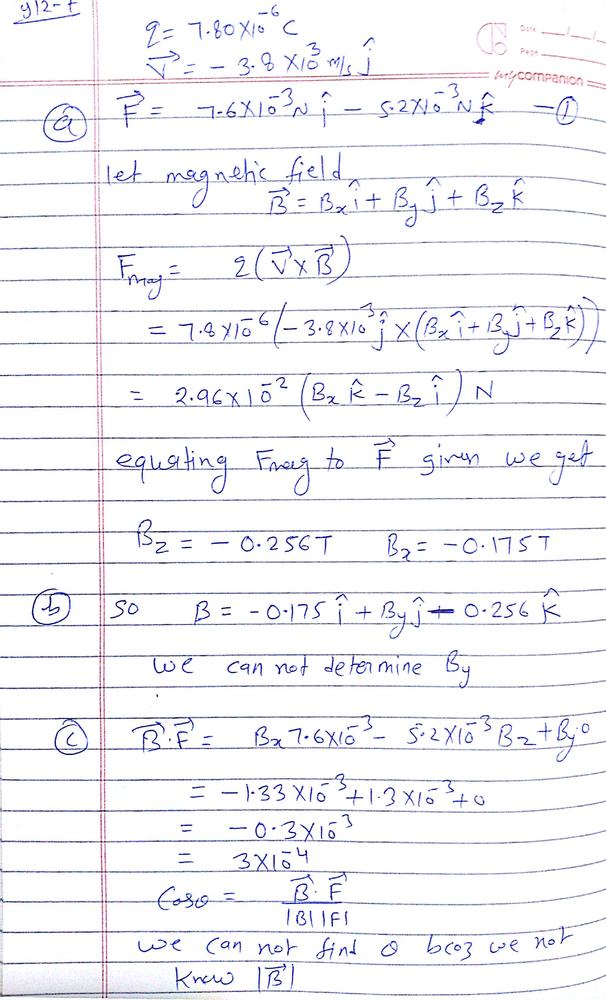 912-7
q = 7.80×10⁻⁶ C
V⃗ = − 3.8 ×10³ m/s ĵ
Date
Page
mycompanion
ⓐ F⃗ = 7.6×10⁻³N î − 5.2×10⁻³N k̂ —①
let magnetic field
B⃗ = Bxî + Byĵ + Bzk̂
Fmag = q(V⃗×B⃗)
= 7.8×10⁻⁶(−3.8×10³ĵ×(Bxî+Byĵ+Bzk̂))
= 2.96×10⁻²(Bx k̂ − Bz î) N
equating Fmag to F⃗ given we get
Bz = − 0.256T Bx = −0.175T
ⓑ so B = −0.175 î + Byĵ − 0.256 k̂
we can not determine By
ⓒ B⃗.F⃗ = Bx7.6×10⁻³ − 5.2×10⁻³Bz + By0
= −1.33×10⁻³+1.3×10⁻³+0
= −0.3×10⁻³
= 3×10⁻⁴
Cosθ = B⃗.F⃗ / |B||F|
we can not find θ bcoz we not
know |B⃗|